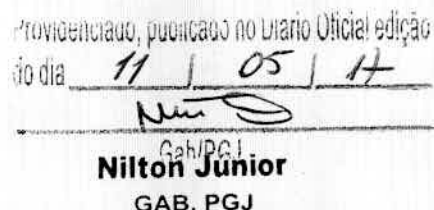 Providenciado, publicado no Diário Oficial edição
do dia 11 / 05 / 17
Gab/PGJ
Nilton Junior
GAB. PGJ